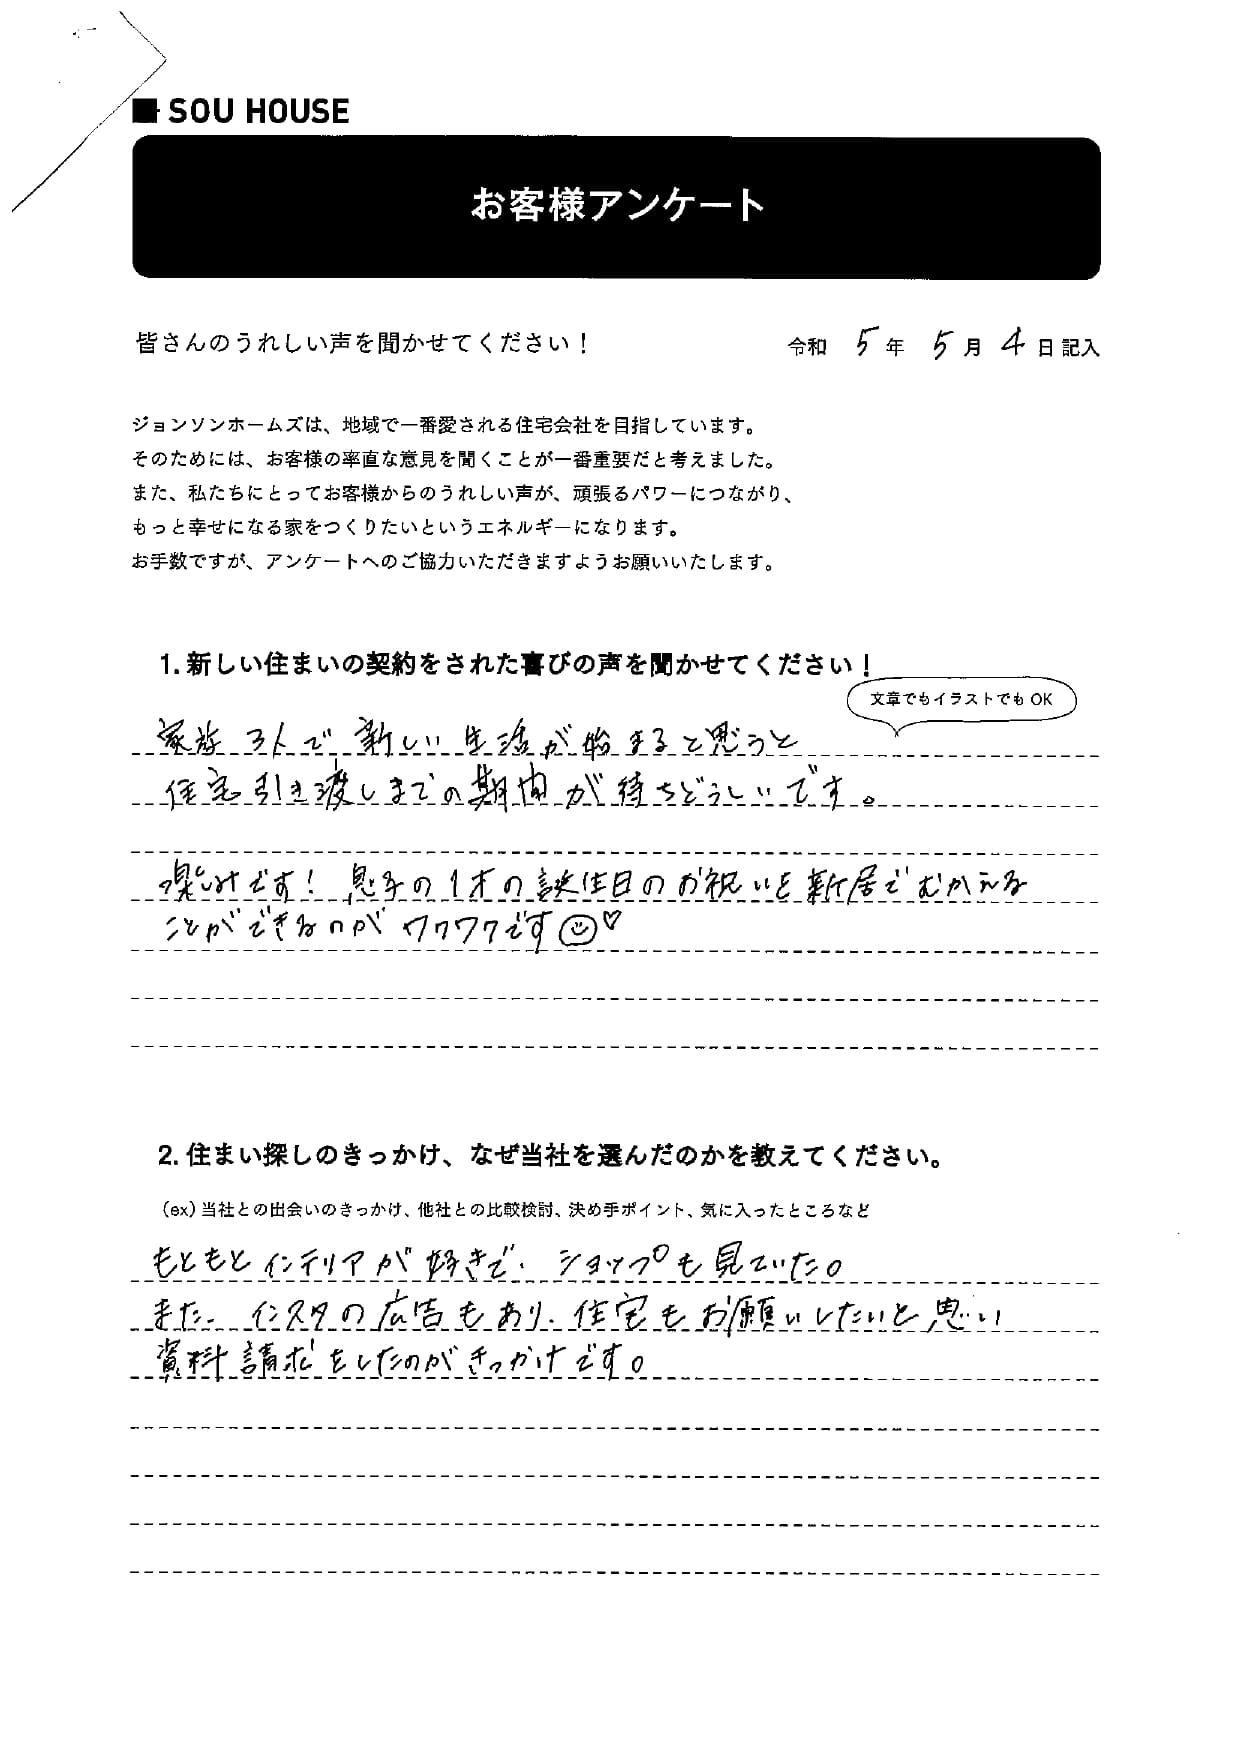 SOU HOUSE
お客様アンケート
皆さんのうれしい声を聞かせてください！
令和 5年 5月 4日記入
ジョンソンホームズは、地域で一番愛される住宅会社を目指しています。
そのためには、お客様の率直な意見を聞くことが一番重要だと考えました。
また、私たちにとってお客様からのうれしい声が、頑張るパワーにつながり、
もっと幸せになる家をつくりたいというエネルギーになります。
お手数ですが、アンケートへのご協力いただきますようお願いいたします。
1. 新しい住まいの契約をされた喜びの声を聞かせてください！
文章でもイラストでも OK
家族3人で新しい生活が始まると思うと
住宅引き渡しまでの期間が待ちどうしいです。
楽しみです！ 息子の1才の誕生日のお祝いを新居でむかえる
ことができるのがワクワクです☺♡
2. 住まい探しのきっかけ、なぜ当社を選んだのかを教えてください。
（ex）当社との出会いのきっかけ、他社との比較検討、決め手ポイント、気に入ったところなど
もともとインテリアが好きで、ショップも見ていた。
また、インスタの広告もあり、住宅もお願いしたいと思い
資料請求をしたのがきっかけです。